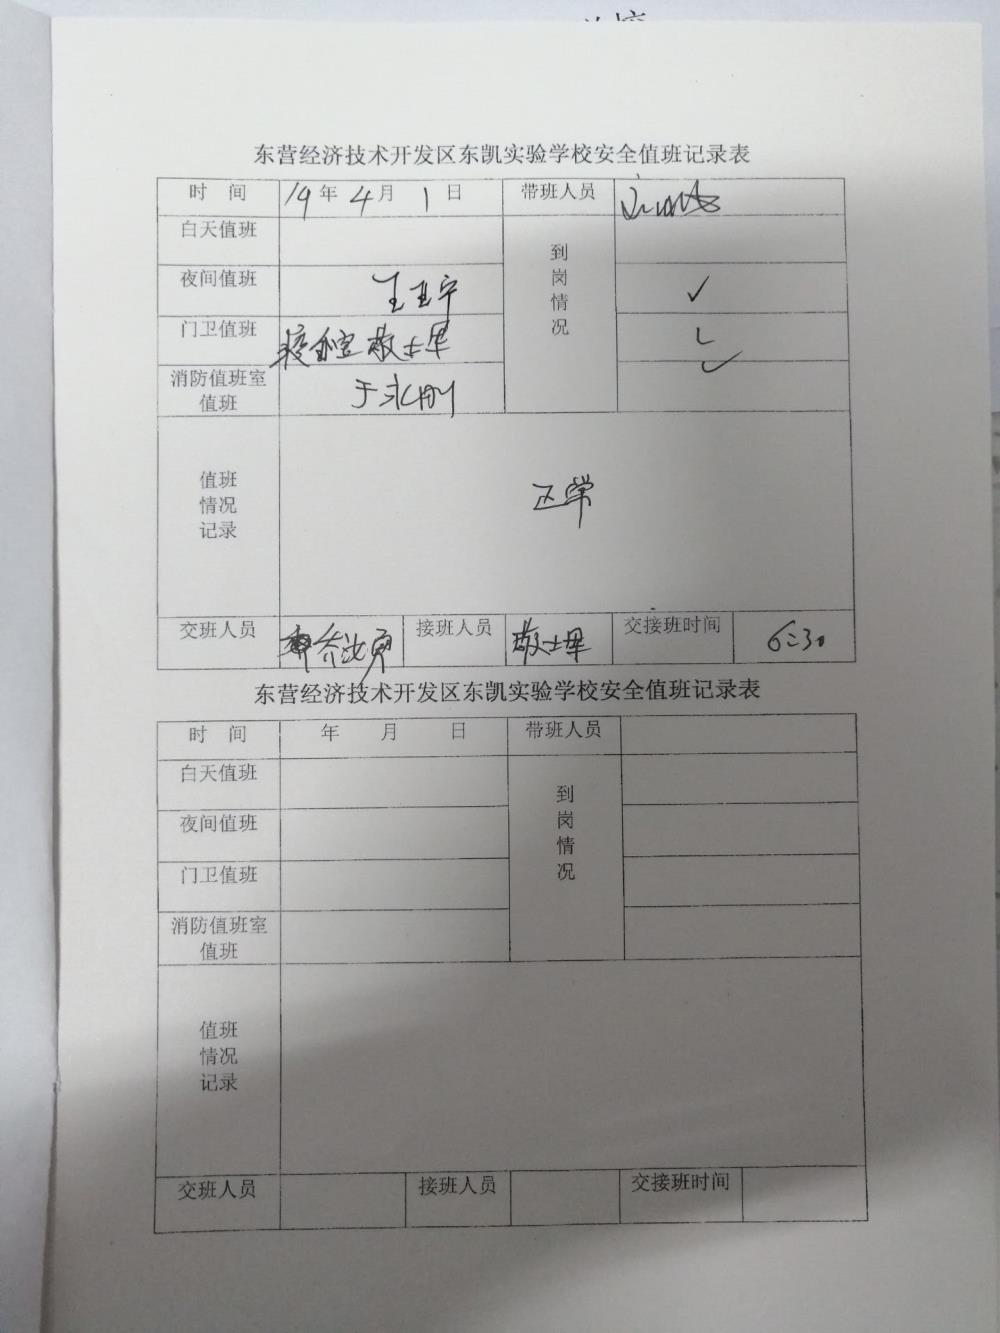 东营经济技术开发区东凯实验学校安全值班记录表
时 间 19年4月1日 带班人员
白天值班 到岗情况
夜间值班 王玉宁 ✓
门卫值班 敬士军 ✓
消防值班室值班 于永刚 ✓
值班情况记录 正常
交班人员 接班人员 敬士军 交接班时间 6:30
东营经济技术开发区东凯实验学校安全值班记录表
时 间 年 月 日 带班人员
白天值班 到岗情况
夜间值班
门卫值班
消防值班室值班
值班情况记录
交班人员 接班人员 交接班时间